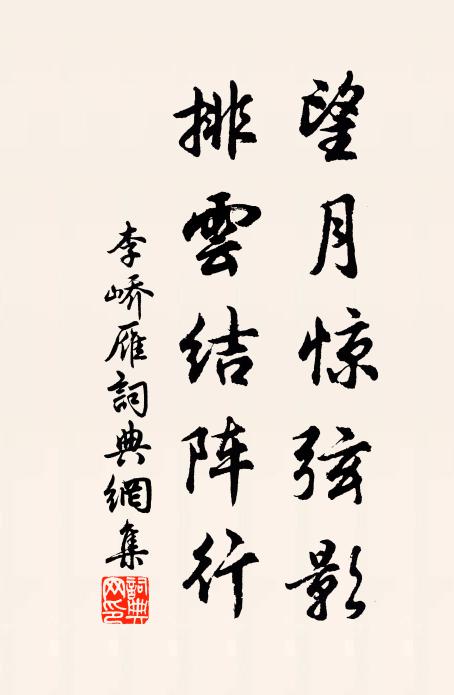 望月惊弦影
排雲结阵行
李峤雁詞典網集
詞典网印